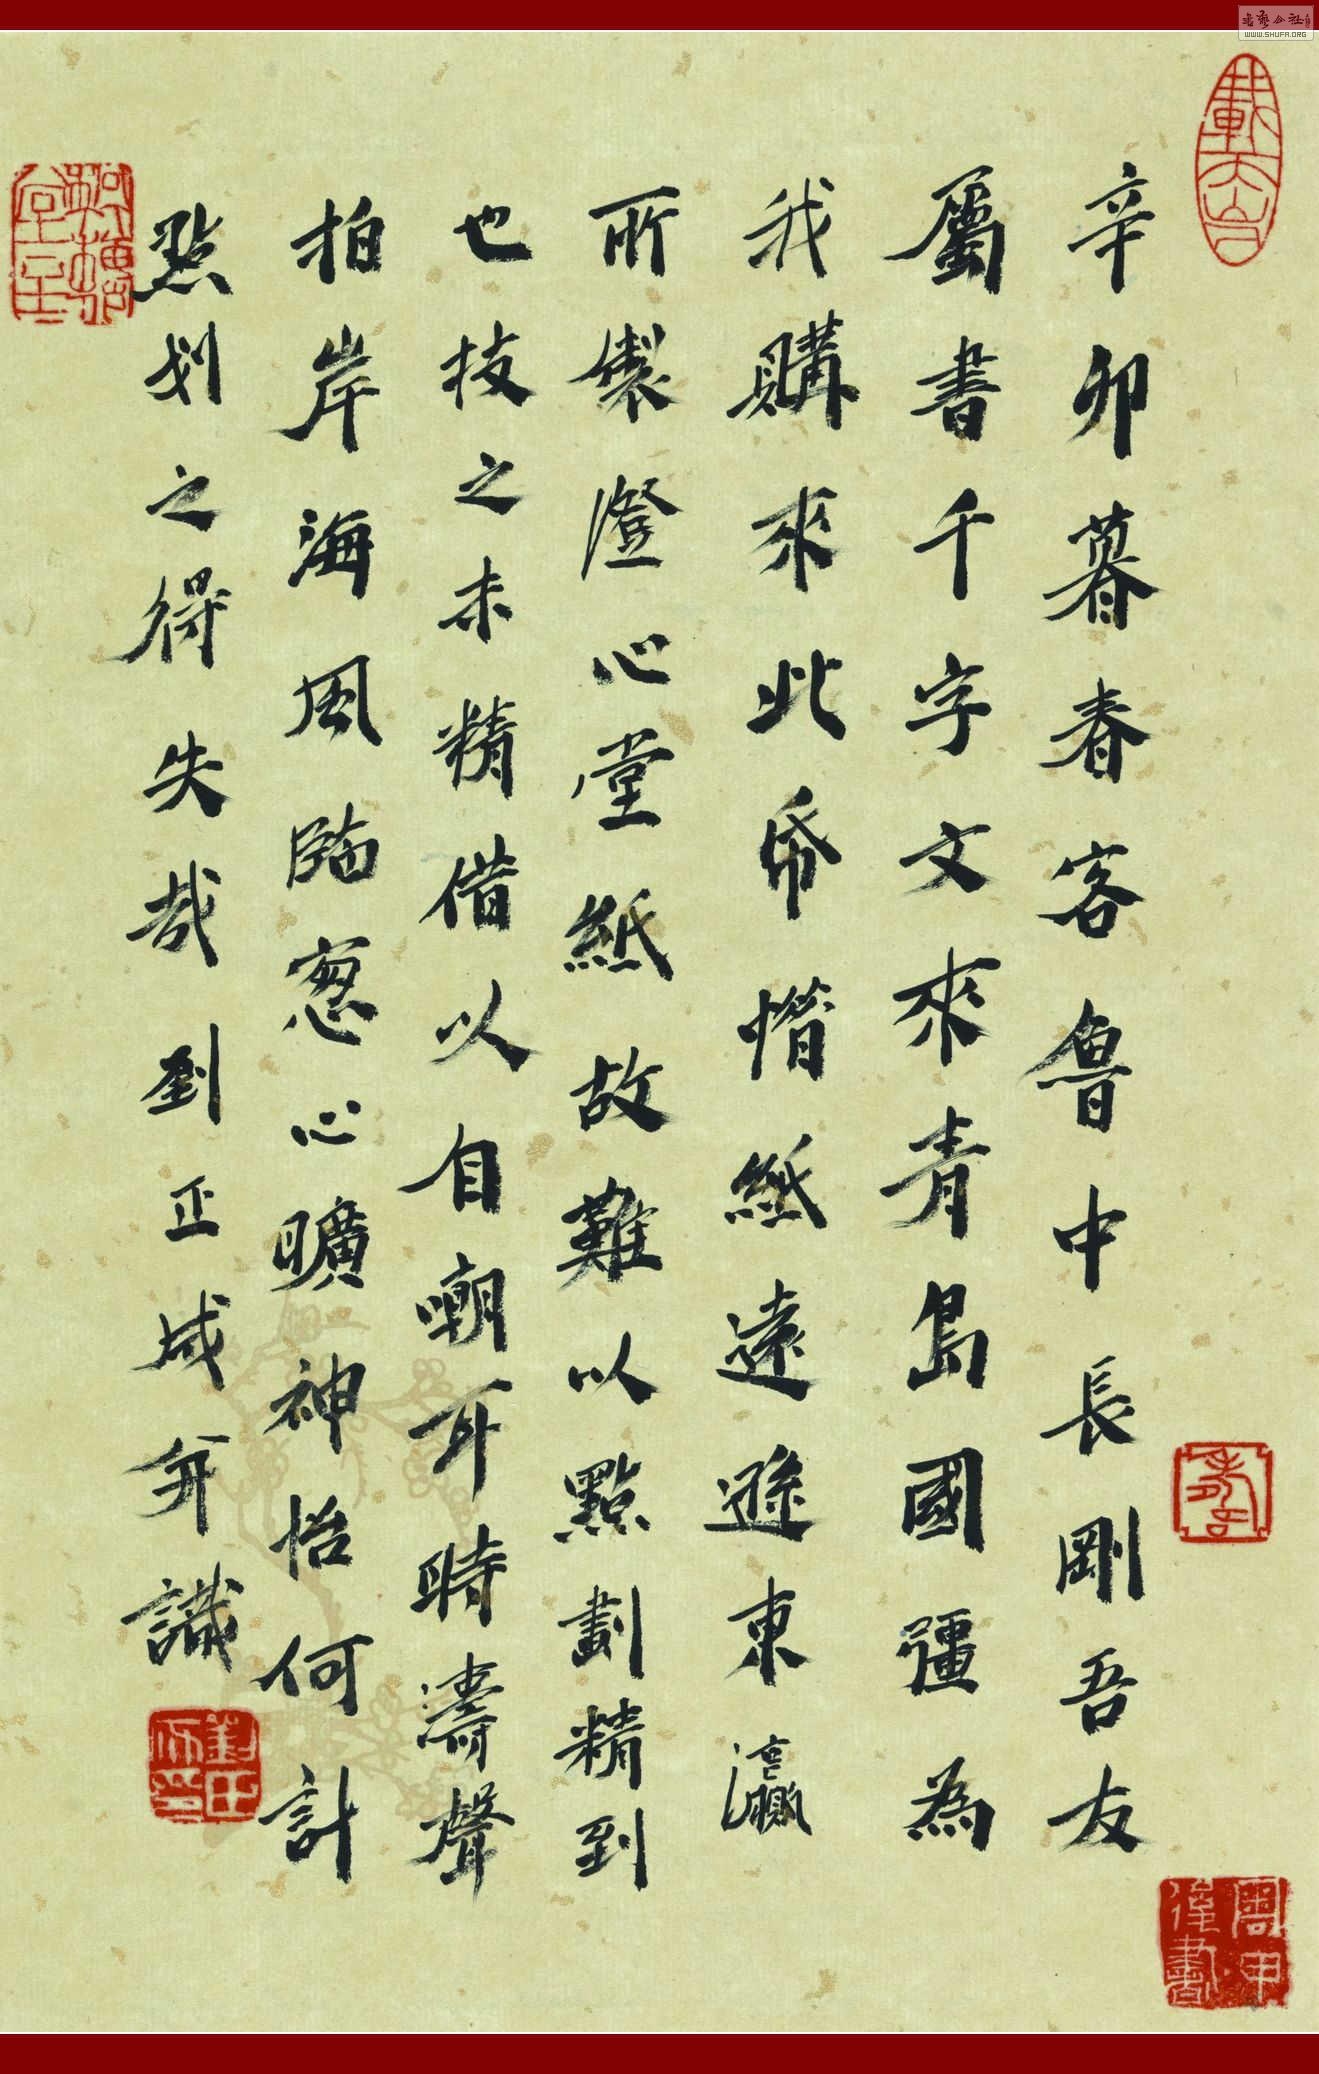 辛卯暮春客魯中長剛吾友
屬書千字文來青島國疆為
我購來此帋惜紙遠遜東瀛
所製澄心堂紙故難以點劃精到
也技之未精借以自嘲耳時濤聲
拍岸海風臨窓心曠神怡何計
點划之得失哉劉正成并識
WWW.SHUFA.ORG